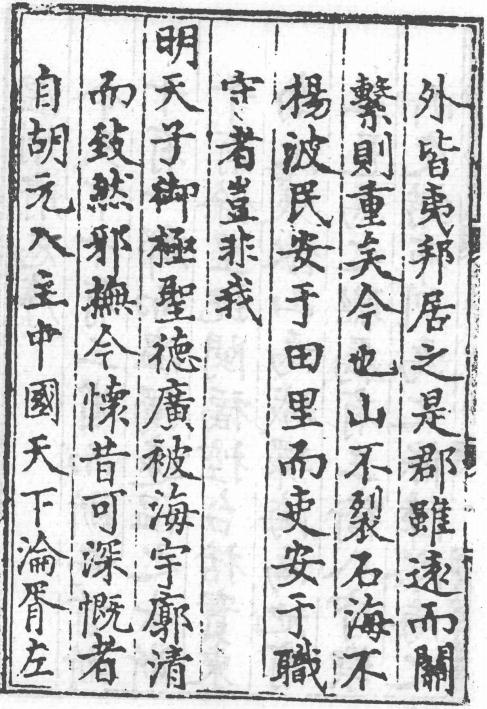 外皆夷邦居之是郡雖逺而關
繫則重矣今也山不裂石海不
揚波民安于田里而吏安于職
守者豈非我
明天子御極聖德廣被海宇廓清
而致然邪撫今懷昔可深慨者
自胡元入主中國天下淪胥左